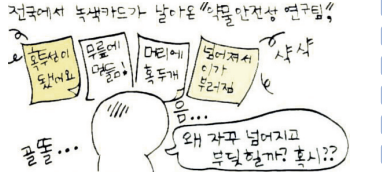 전국에서 녹색카드가 날아온 "약물안전성 연구팀"
혹투성이
됐어요
무릎에
멍듦!
머리에
혹두개
넘어져서
이가
부러짐
샥샥
음...
골똘...
왜 자꾸 넘어지고
부딪힐까? 혹시??